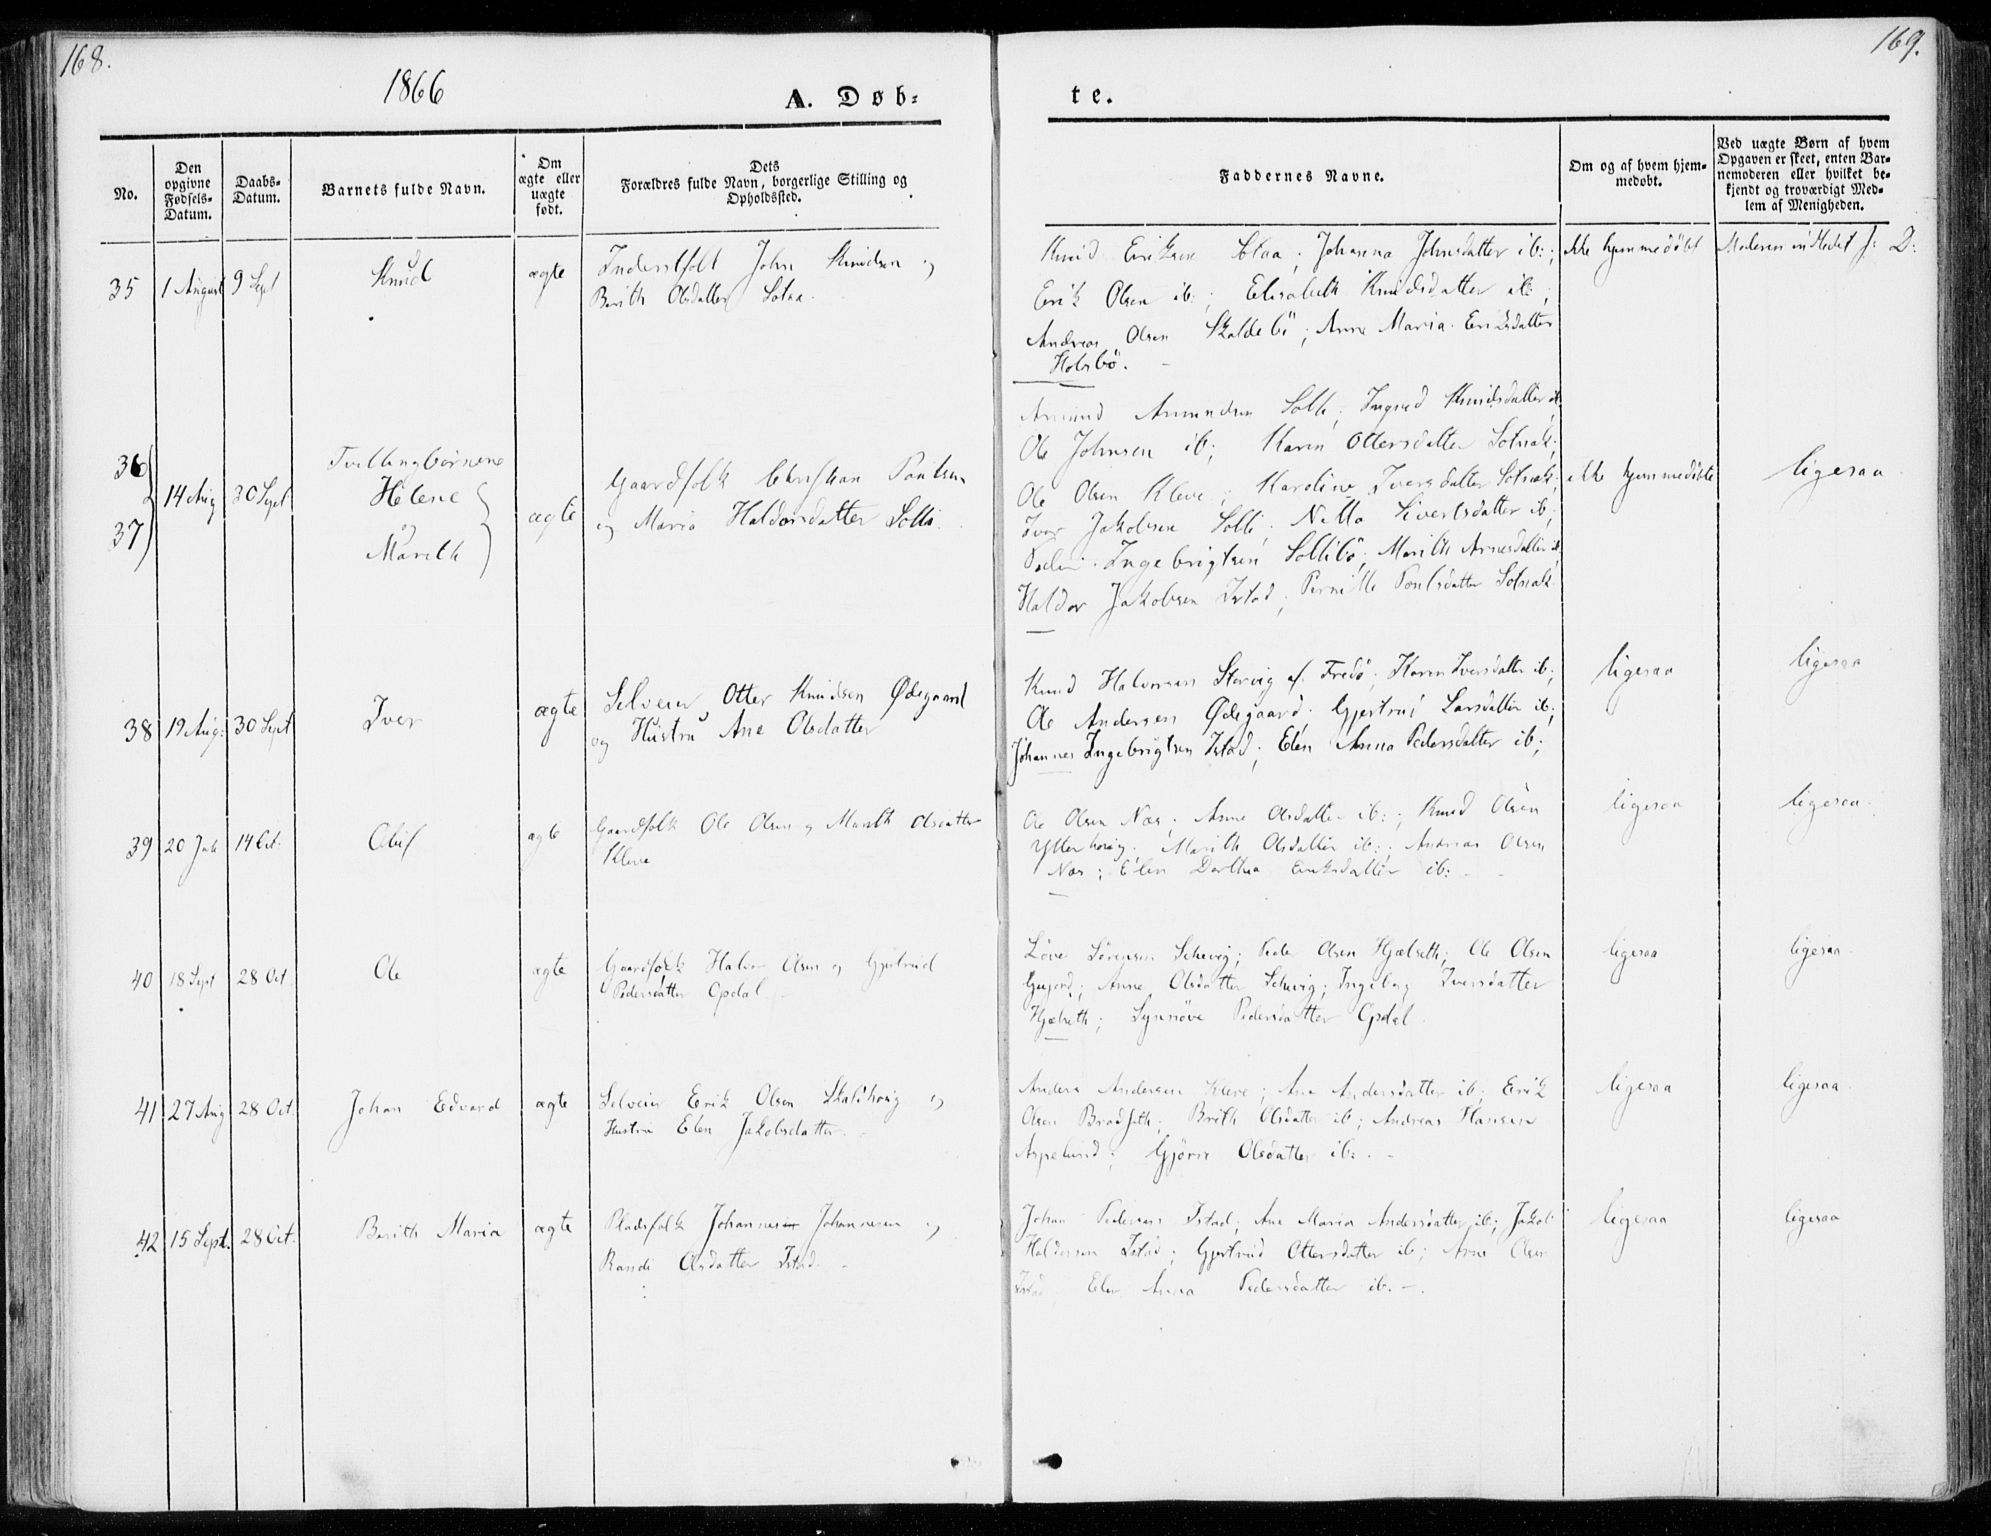 168.
1866
A. Døb-
No.
Den
opgivne
Fødsels-
Datum.
Daabs-
Datum.
Barnets fulde Navn.
Om
ægte eller
uægte
født.
Dets
Forældres fulde Navn, borgerlige Stilling og
Opholdssted.
35 1 August 9 Sept Knud ægte
Inderstfolk John Knudsen og
Berith Olsdatter
36
37
14 Aug 30 Sept
Tvillingbørnene
Helene
og
Marith
ægte
Gaardfolk Christian Paulsen
og Maria Haldorsdatter Solli
38 19 Aug: 30 Sept Iver ægte
Selveier Otter Knudsen Ødegaard
og Hustru Ane Olsdatter
39 20 Juli 14 Oct: Oluf ægte
Gaardfolk Ole Olsen og Marith Olsdatter
Kleve
40 18 Sept 28 Oct Ole ægte
Gaardfolk Halvor Olsen og Gjertrud
Pedersdatter Opdal
41 27 Aug 28 Oct. Johan Edvard ægte
Selveier Erik Olsen Skalshoug og
Hustru Elen Jakobsdatter.
42 15 Sept. 28 Oct. Berith Maria ægte
Pladsfolk Johannes Johannesen og
Randi Olsdatter Istad.
169.
te.
Faddernes Navne.
Om og af hvem hjem-
medøbt.
Ved uægte Børn af hvem
Opgaven er skeet, enten Bar-
nemoderen eller hvilket be-
kjendt og troværdigt Med-
lem af Menigheden.
Knud Eriksen Johanna Johnsdatter ib:;
Erik Olsen ib:; Elisabeth Knudsdatter ib:;
Andreas Olsen Skaldebö; Anne Maria Eriksdatter
Holsbö.
ikke hjemmedöbt
Moderen
Amund Amundsen Solli; Ingred Knudsdatter ib.
Ole Johnsen ib; Karen Ottersdatter Solsæk;
Ole Olsen Kleve; Karoline Iversdatter Solsæk;
Iver Jakobsen Solli; Nilla Sivertsdatter ib;
Peder Ingebrigtsen Sollibö; Marith Arnesdatter ib
Haldor Jakobsen Istad; Pernille Poulsdatter Solsæk
ikke hjemmedöbte
ligesaa
Knud Halvorsen Storvig af Fredö; Karen Iversdatter ib;
Ole Andersen Ødegaard; Gjertrud Larsdatter ib;
Johannes Ingebrigtsen Istad; Elen Anna Pedersdatter ib;
ligesaa
ligesaa
Ole Olsen Næs; Anne Olsdatter ib:; Knud Olsen
Ytterhoug; Marith Olsdatter ib:; Andreas Olsen
Næs; Elen Dorthea Eriksdatter ib:
ligesaa
ligesaa
Löve Sörensen Schevig; Peder Olsen Hjælseth; Ole Olsen
Anne Olsdatter Schevig; Ingeborg Iversdatter
Hjelseth; Synnöve Pedersdatter Opdal.
ligesaa
ligesaa
Anders Andersen Kleve; Ane Andersdatter ib; Erik
Olsen Bradseth; Brith Olsdatter ib; Andreas Hansen
Aspelund; Gjöru Olsdatter ib:
ligesaa
ligesaa
Johan Pedersen Istad; Ane Maria Andersdatter ib; Jakob
Haldorsen Istad; Gjertrud Ottersdatter ib; Arne Olsen
Istad; Elen Anna Pedersdatter ib.
ligesaa
ligesaa